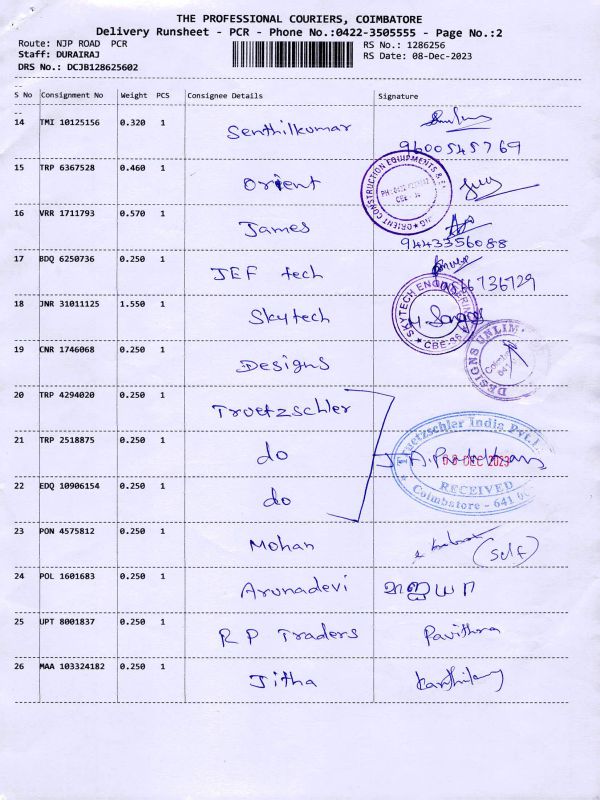 THE PROFESSIONAL COURIERS, COIMBATORE
Delivery Runsheet - PCR - Phone No.:0422-3505555 - Page No.:2
Route: NJP ROAD PCR
RS No.: 1286256
Staff: DURAIRAJ
RS Date: 08-Dec-2023
DRS No.: DCJB128625602
S No Consignment No Weight PCS Consignee Details Signature
14 TMI 10125156 0.320 1 Senthilkumar
9600545769
15 TRP 6367528 0.460 1 Orient
ORIENT CONSTRUCTION EQUIPMENTS &
CBE - 
16 VRR 1711793 0.570 1 James
9443356088
17 BDQ 6250736 0.250 1 JEF tech
18 JNR 31011125 1.550 1 Skytech
SKYTECH ENGINEERING
CBE-36
19 CNR 1746068 0.250 1 Designs
DESIGNS UNLIM
Coimbatore
641
20 TRP 4294020 0.250 1 Truetzschler
21 TRP 2518875 0.250 1 do
Truetzschler India Pvt.
08 DEC 2023
RECEIVED
Coimbatore - 641
22 EDQ 10906154 0.250 1 do
23 PON 4575812 0.250 1 Mohan (self)
24 POL 1601683 0.250 1 Arunadevi
25 UPT 8001837 0.250 1 R P Traders Pavithra
26 MAA 103324182 0.250 1 Jitha